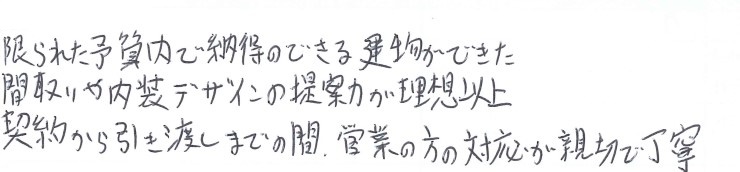 限られた予算内で納得のできる建物ができた
間取りや内装デザインの提案力が理想以上
契約から引き渡しまでの間、営業の方の対応が親切で丁寧